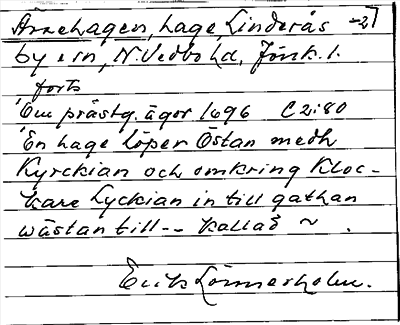 Årnehagen, hage, Linderås -27
by o sn, N. Vedbo hd, Jönk. l.
forts
'Om prästg. ägor 1696 C 2:80
'En hage löper Östan medh
Kyrckian och omkring Kloc-
kare Lyckian in till gathan
wästan till -- kallad ~ .
Erik Lönnerholm.